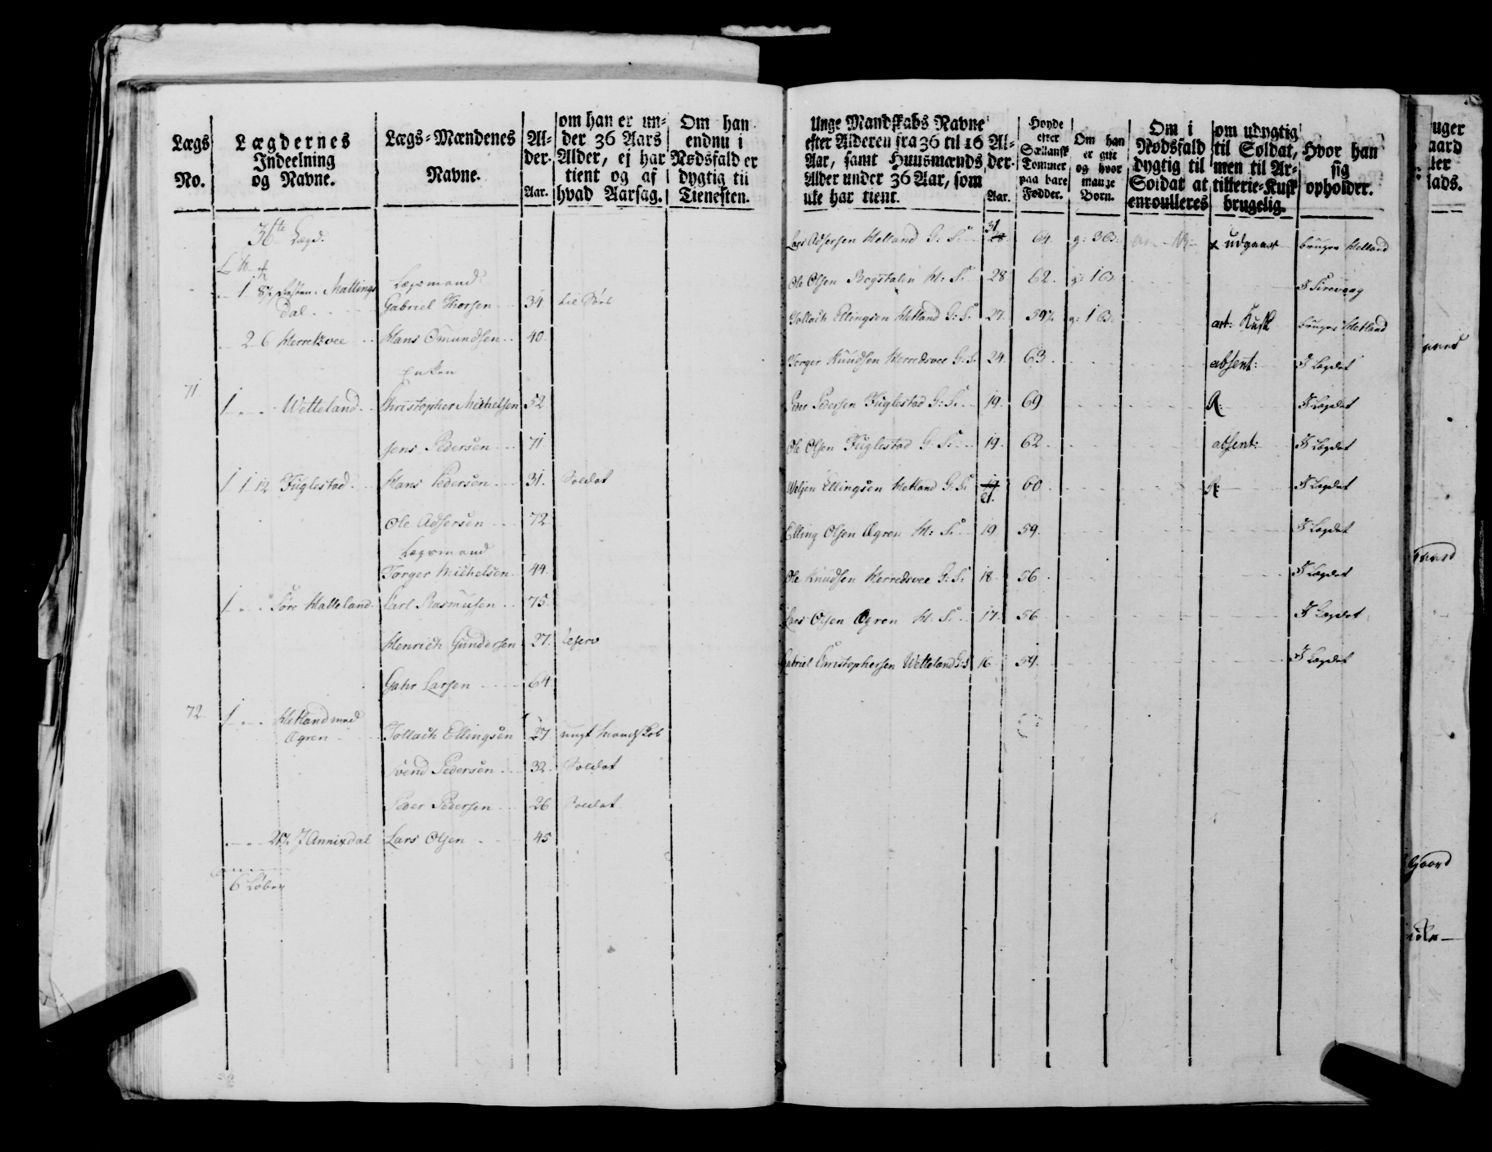 Lægs
No.
Lægdernes
Indeelning
og Navne.
Lægs-Mændenes
Navne.
Al-
der.
Aar.
om han er un-
der 36 Aars
Alder, ej har
tient og af
hvad Aarsag.
Om han
endnu i
Nødsfald er
dygtig til
Tienesten.
36te Lægd.
1 8½ Mallings
dal
Lægsmand
Gabriel Thorsen 34
2 6 Herredsvee Hans Omundsen 40
Enken
71 1 Wetteland Christopher Michelsen 52
Jens Pedersen 71
1 1 12 Fuglestad Hans Pedersen 31 Soldat
Ole Adsersen 72
Lægsmand
Torger Michelsen 44
1 Søre Hatteland Carl Rasmussen 75
Henrich Gundersen 27
Larsen 64
72 1 Hetland med
Ægren Tollach Ellingsen 27 ungt Mandskab
Svend Pedersen 32 Soldat
Peder Pedersen 26 Soldat
Annixdal Lars Olsen 45
6 Løber
Unge Mandskabs Navne
efter Alderen fra 36 til 16
Aar, samt Huusmænds
Alder under 36 Aar, som
ikke har tient.
Al-
der.
Aar.
Høyde
efter
Sællansk
Tommer
paa bare
Fødder.
Om han
er gift
og hvor
mange
Børn.
Om i
Nødsfald
dygtig til
Soldat at
enroulleres
om udygtig
til Soldat,
men til Ar-
tillerie-Kusk
brugelig.
Hvor han
sig
opholder.
Lars Adsersen Hetland G: S. 31 64 g: 3 B. udgaaer bruger Hetland
Ole Olsen Bogstalen H: S. 28 62 g: 1 B. I Sirevaag
Tollach Ellingsen Hetland G: S. 27 59½ g: 1 B. art: Kusk bruger Hetland
Torger Knudsen Herredsvee G: S. 24 63 absent: I Lægdet
Peder Pedersen Fuglestad G: S. 19 69 R. I Lægdet
Ole Olsen Fuglestad G: S. 19 62 absent: I Lægdet
Ellingsen Hetland G: S. 21 60 I Lægdet
Elling Olsen Ægren H: S. 19 59 I Lægdet
Ole Knudsen Herredsvee G: S. 18 56 I Lægdet
Lars Olsen Ægren H: S. 17 56 I Lægdet
Gabriel Christophersen Wetteland G: S 16 54 I Lægdet